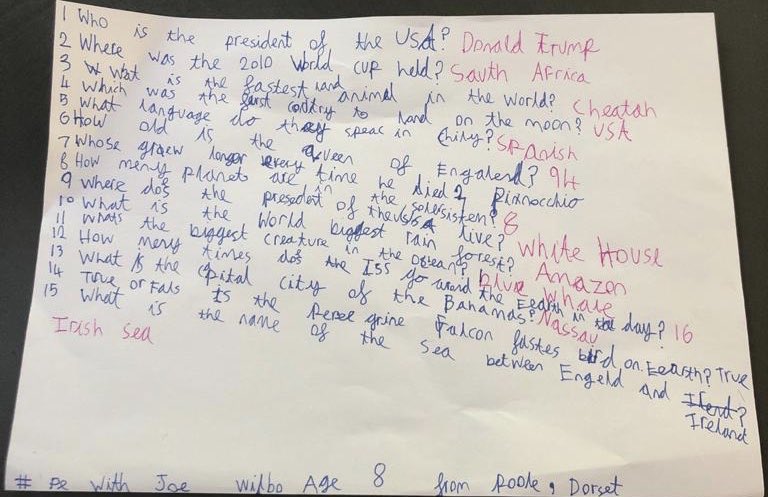 1 Who is the president of the USA? Donald Trump
2 Where was the 2010 World cup held? South Africa
3 Wat is the fastest land animal in the world? Cheatah
4 Which was the first contry to land on the moon? USA
5 What language do they speac in Chily? Spanish
6 How old is the Queen of Engalend? 94
7 Whose grow longer every time he died? Pinnocchio
8 How meny planets are in the solersisten? 8
9 Where dos the presedent of the USA live? White House
10 What is the World biggest rain forest? Amazon
11 Whats the biggest creature in the Ocean? Blue Whale
12 How meny times dos the ISS go around the Eearth in day? 16
13 What is the Cpital city of the Bahamas? Nassau
14 True or Fals Is the Peree grine Falcon fastes bird on Eearsth? True
15 What is the name of the sea between Engeld and Ireland?
Irish sea
# PE With Joe Wilbo Age 8 from Poole, Dorset